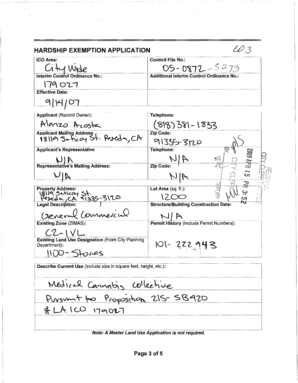 CD 3
HARDSHIP EXEMPTION APPLICATION
ICO Area: Council File No.:
City Wide 05-0872-S279
Interim Control Ordinance No.: Additional Interim Control Ordinance No.:
179027
Effective Date:
9/14/07
Applicant (Record Owner): Telephone:
Alonzo Acosta (818) 381-1833
Applicant Mailing Address Zip Code:
18119 Saticoy St. Reseda, CA 91335-3120
Applicant's Representative Telephone:
N/A N/A
Representative's Mailing Address: Zip Code:
N/A N/A
Property Address: Lot Area (sq. ft.):
18119 Saticoy St.
Reseda, CA 91335-3120 1200
Legal Description: Structure/Building Construction Date:
General Commercial N/A
Existing Zone (ZIMAS): Permit History (Include Permit Numbers):
C2-1VL
Existing Land Use Designation (From City Planning Department): 101-222943
1100-Stores
Describe Current Use (include size in square feet, height, etc.):
Medical Cannabis Collective
Pursuant to Proposition 215 - SB420
& LA ICO 179027
Note: A Master Land Use Application is not required.
Page 3 of 5